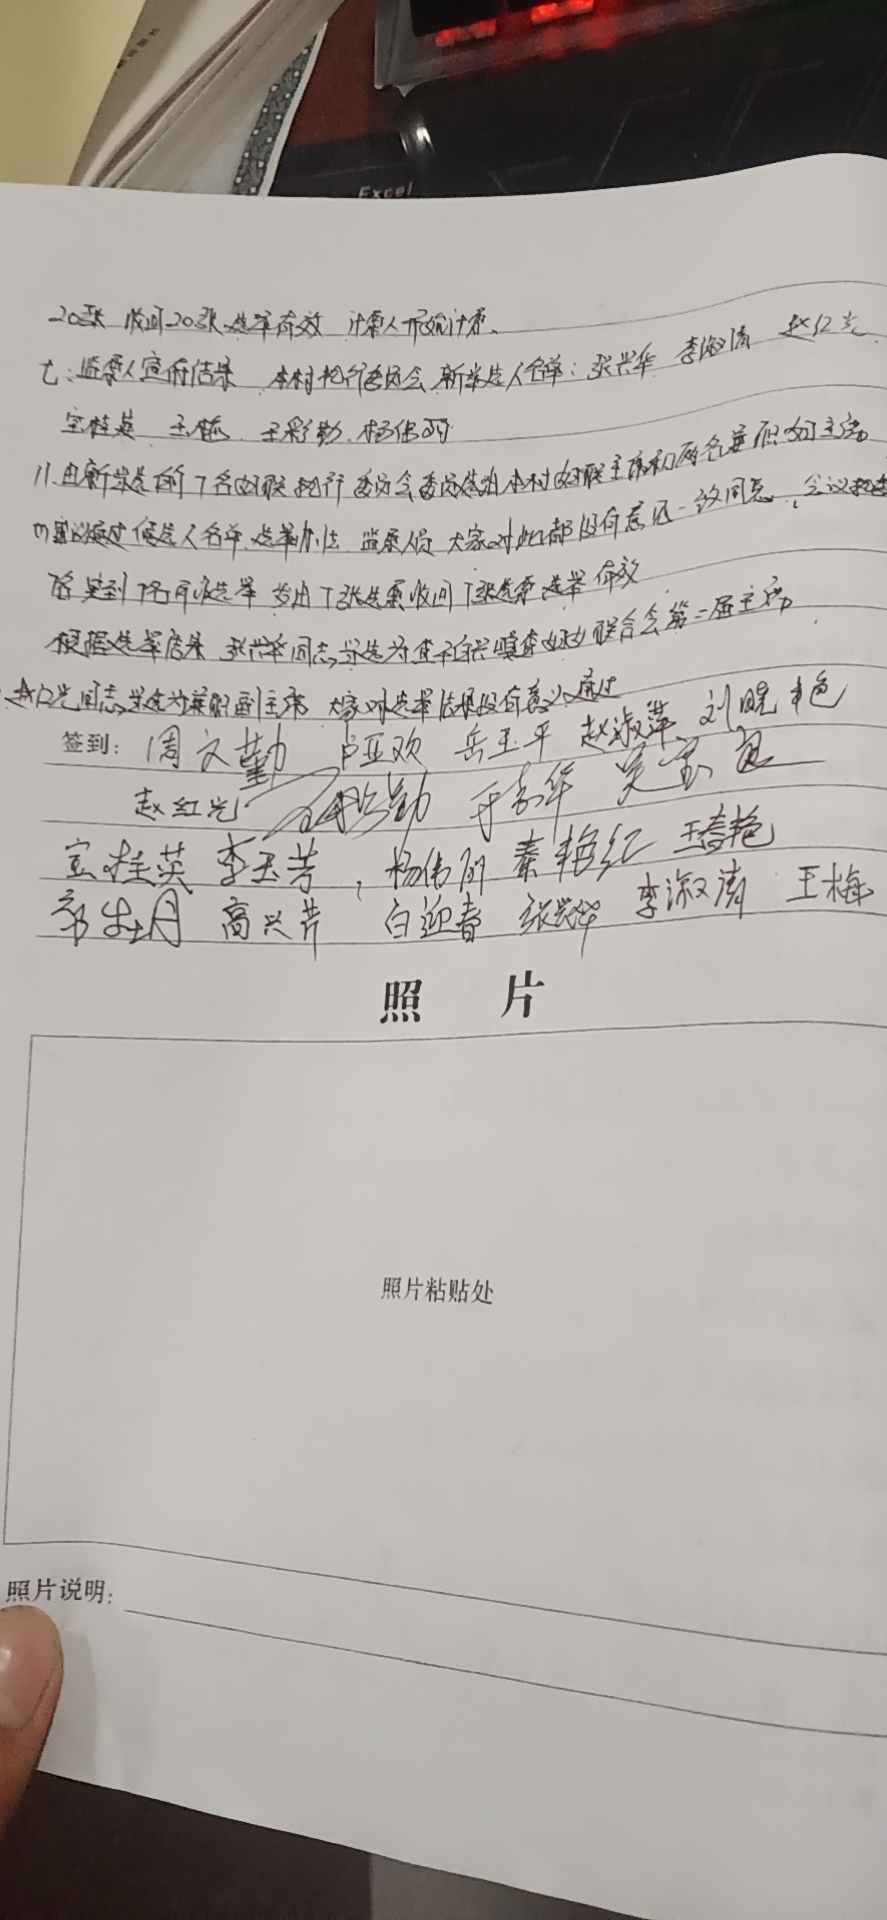 Excel
20张 收回20张 选举有效 计票人开始计票、
七、监票人宣布结果 本村执行委员会新当选人名单：张兴华 李淑清 赵红光
宝桂英 王梅 王彩勤 杨伟丽
八、由新当选的7名妇联执行委员会委员选出本村妇联主席和两名兼职副主席
审议通过候选人名单、选举办法 监票人员 大家对此都没有意见一致同意 会议
实到7名 选举 发出7张选票收回7张选票 选举有效
根据选举结果 张兴华同志当选为 村妇女联合会第二届主席
赵红光同志当选为兼职副主席 大家对选举结果没有意见通过
签到：周文勤 卢亚欢 岳玉平 赵淑萍 刘晓艳
赵红光 于彩华 吴宝良
宝桂英 李玉芳 杨伟丽 秦艳红 王春艳
郭牡丹 高兴芹 白迎春 张兴华 李淑清 王梅
照 片
照片粘贴处
照片说明：